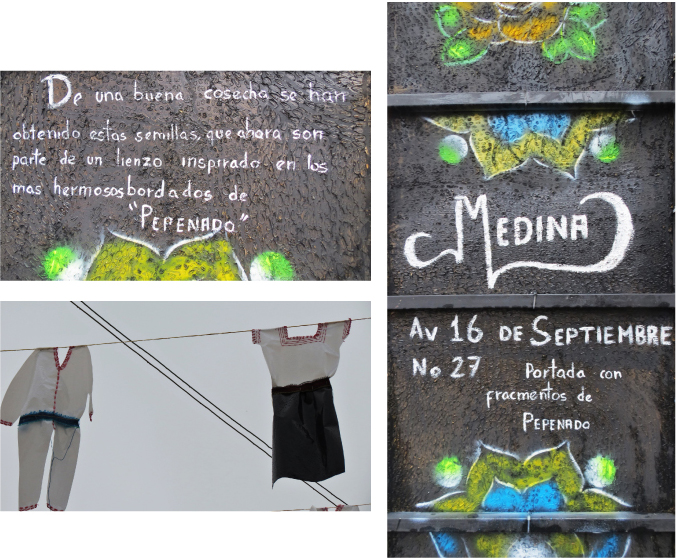 De una buena cosecha se han
obtenido estas semillas, que ahora son
parte de un lienzo inspirado en los
mas hermosos bordados de
"PEPENADO"
MEDINA
AV 16 DE SEPTIEMBRE
No 27 Portada con
fracmentos de
PEPENADO